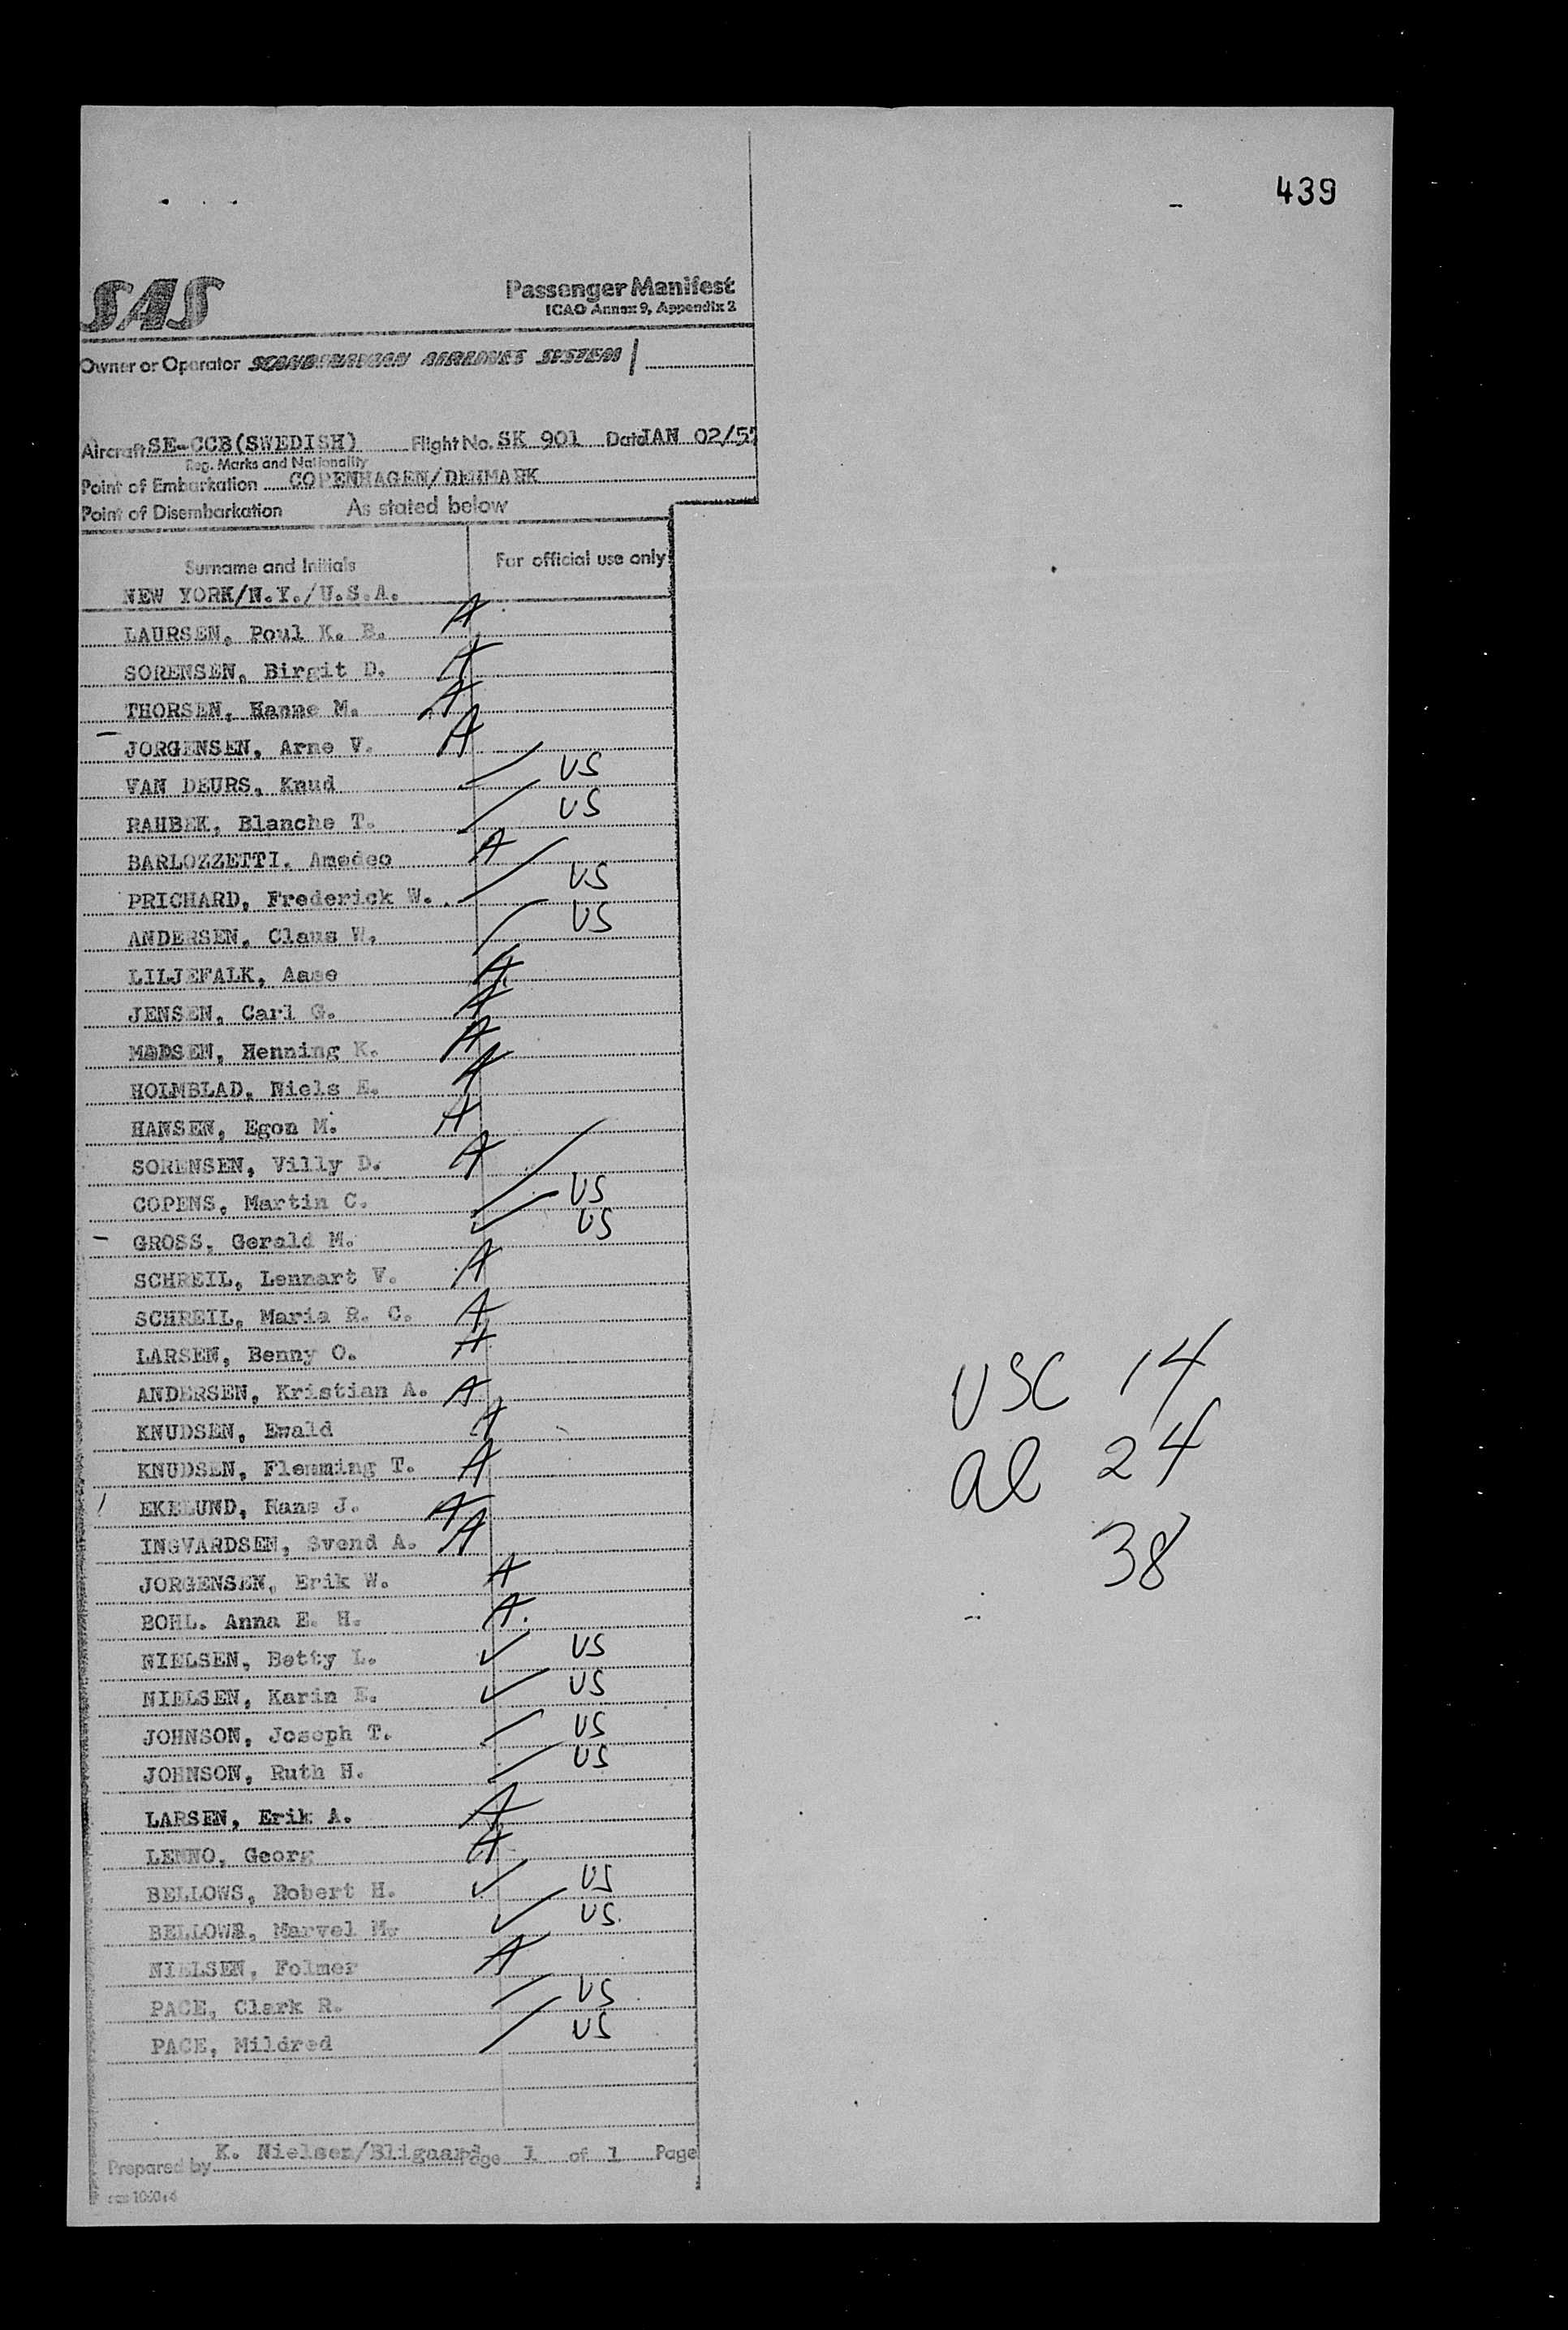 439
SAS
Passenger Manifest
ICAO Annex 9, Appendix 2
Owner or Operator SCANDINAVIAN AIRLINES SYSTEM
Aircraft SE-CCB(SWEDISH) Flight No. SK 901 Date JAN 02/57
Reg. Marks and Nationality
Point of Embarkation COPENHAGEN/DENMARK
Point of Disembarkation As stated below
Surname and Initials For official use only
NEW YORK/N.Y./U.S.A.
LAURSEN, Poul K. B. A
SORENSEN, Birgit D. A
THORSEN, Hanne M. A
- JORGENSEN, Arne V. A
VAN DEURS, Knud US
RAHBEK, Blanche T. US
BARLOZZETTI. Amedeo A
PRICHARD, Frederick W. US
ANDERSEN, Claus W. US
LILJEFALK, Aase A
JENSEN, Carl G. A
MADSEN, Henning K. A
HOLMBLAD, Niels E. A
HANSEN, Egon M. A
SORENSEN, Villy D. A
COPENS, Martin C. US
- GROSS, Gerald M. US
SCHREIL, Lennart V. A
SCHREIL, Maria R. C. A
LARSEN, Benny O. A
ANDERSEN, Kristian A. A
KNUDSEN, Ewald A
KNUDSEN, Flemming T. A
EKELUND, Hans J. A
INGVARDSEN, Svend A. A
JORGENSEN, Erik W. A
BOHL. Anna E. H. A
NIELSEN, Betty L. ✓ US
NIELSEN, Karin E. ✓ US
JOHNSON, Joseph T. US
JOHNSON, Ruth H. US
LARSEN, Erik A. A
LENNO, Georg A
BELLOWS, Robert H. ✓ US
BELLOWS, Marvel M. ✓ US
NIELSEN, Folmer A
PACE, Clark R. US
PACE, Mildred US
USC 14
al 24
38
Prepared by K. Nielsen/Bligaard Page 1 of 1 Page